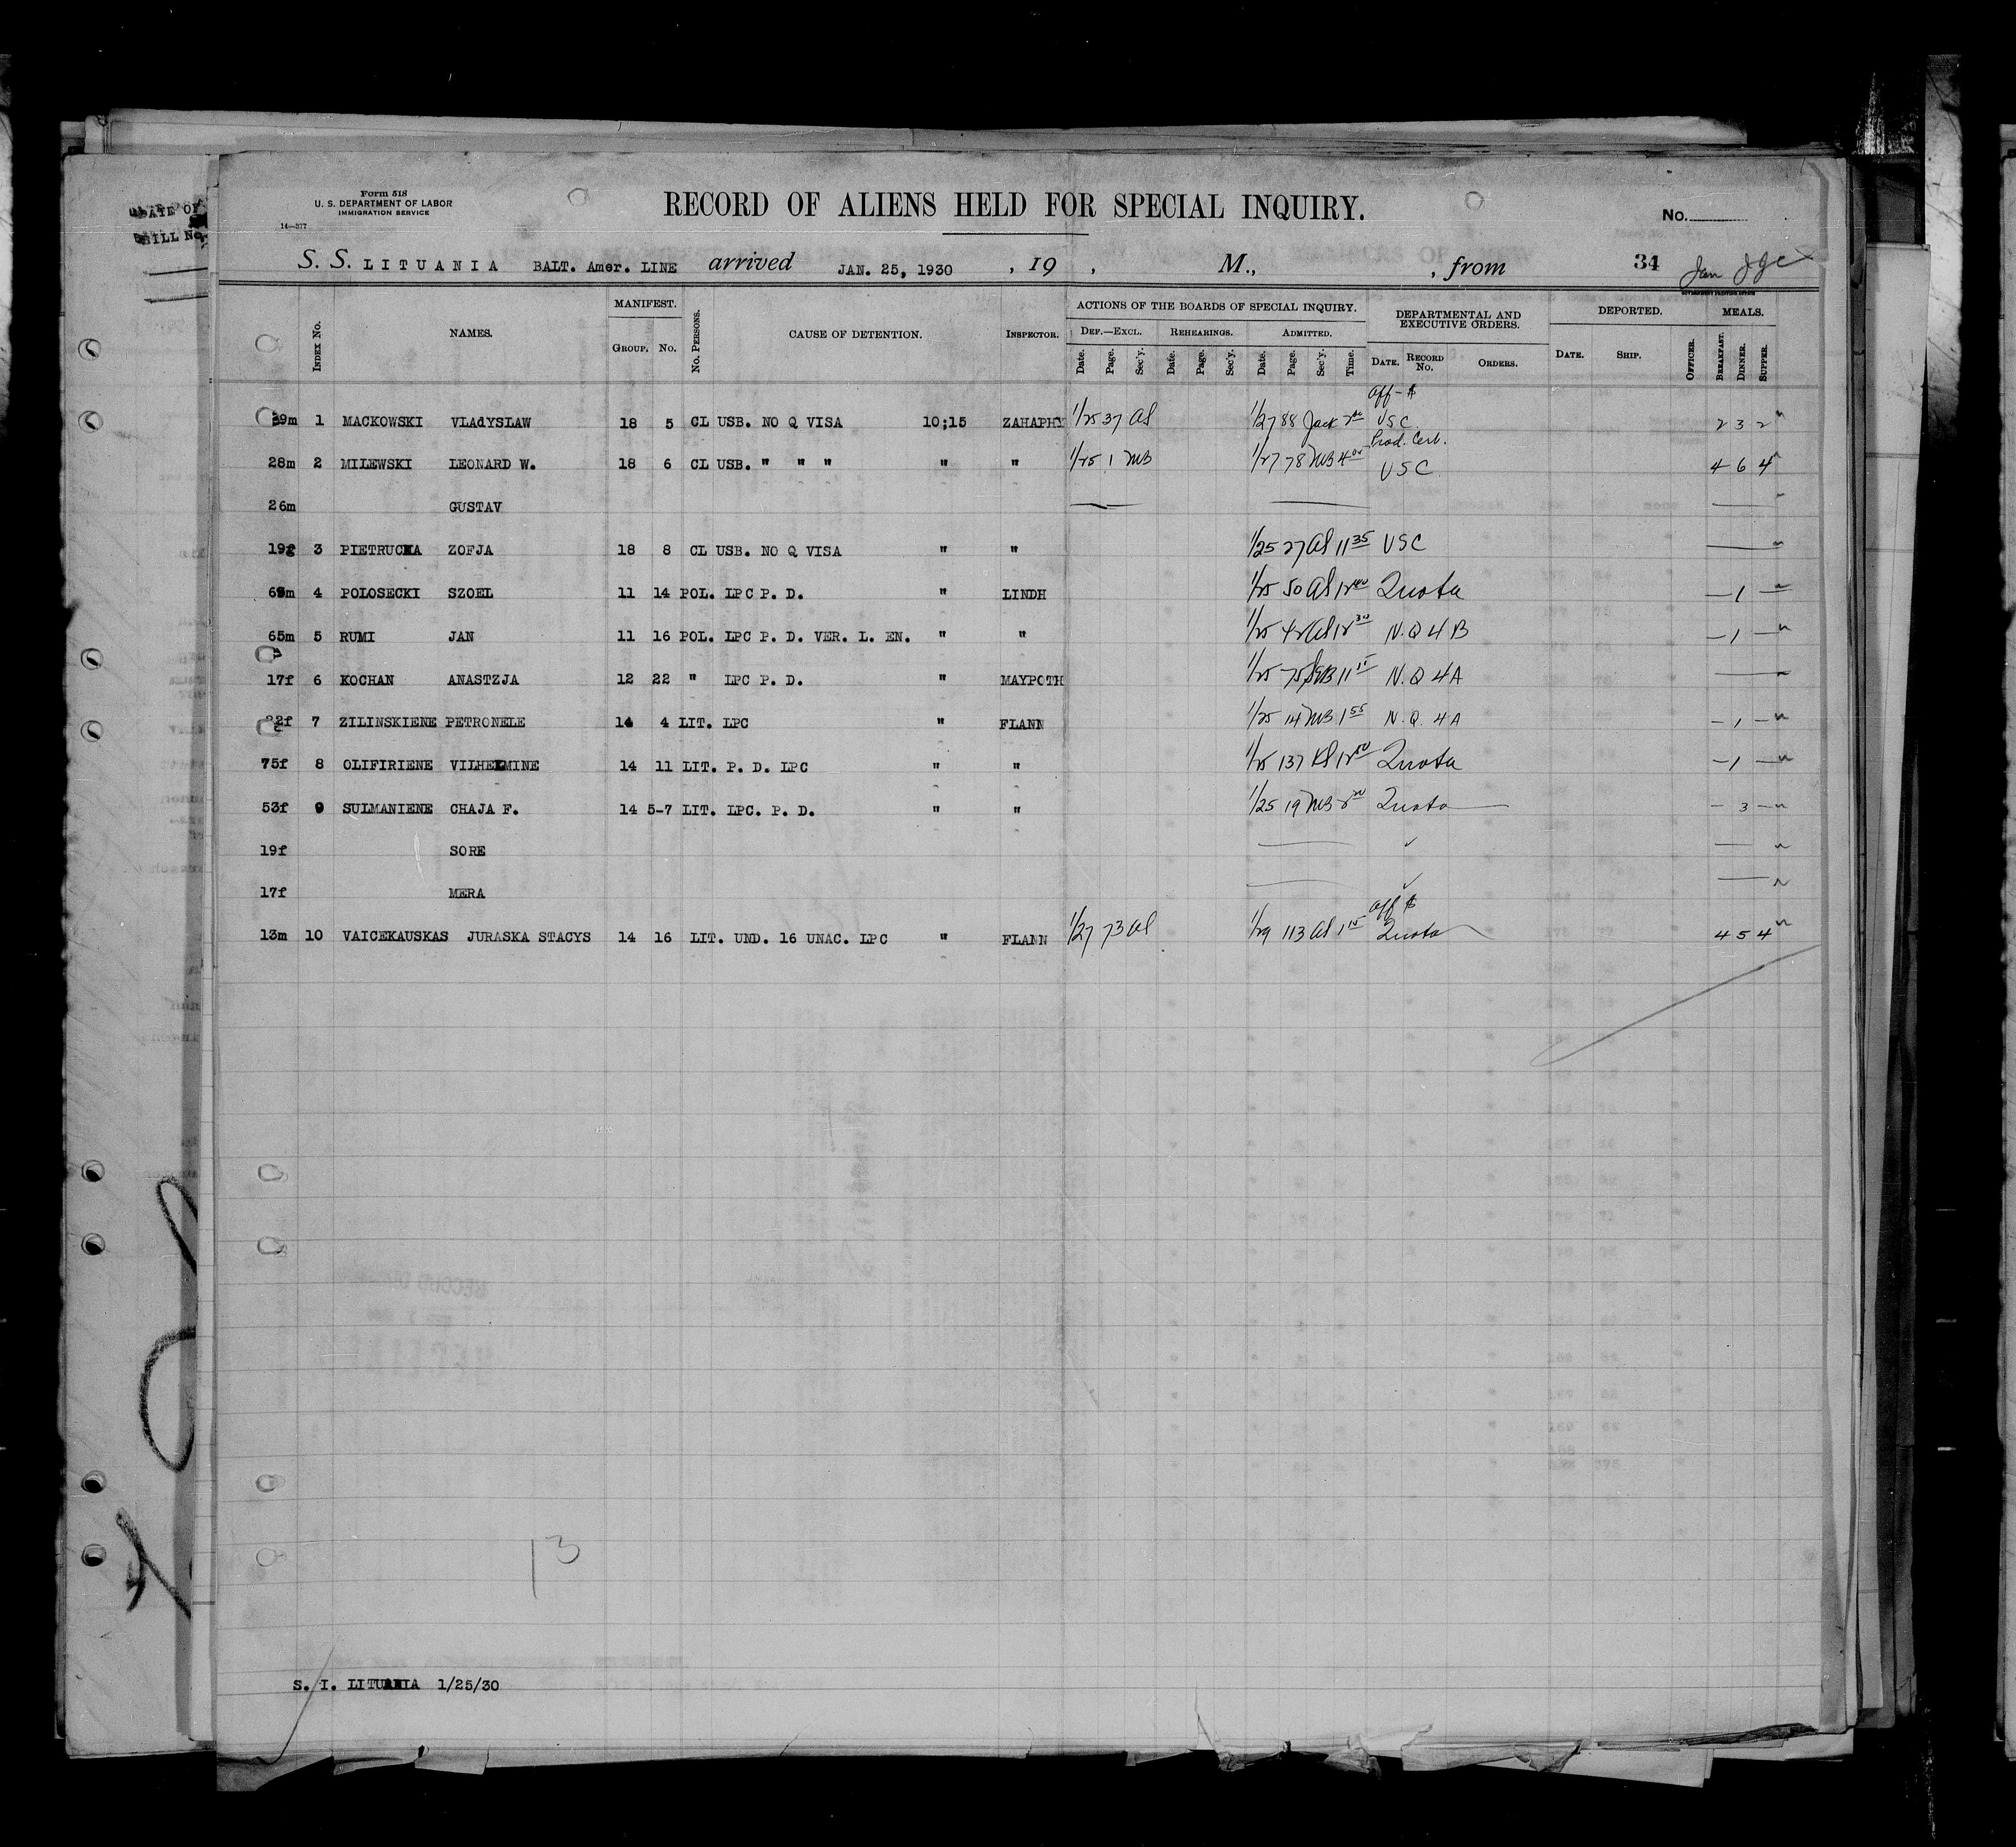 DATE OF
BILL No.
Form 518
U. S. DEPARTMENT OF LABOR
IMMIGRATION SERVICE
14—377
RECORD OF ALIENS HELD FOR SPECIAL INQUIRY.
No.
S. S. LITUANIA BALT. Amer. LINE arrived JAN. 25, 1930 , 19 , M., , from 34 Jan
GOVERNMENT PRINTING OFFICE
INDEX NO. NAMES. MANIFEST. NO. PERSONS. CAUSE OF DETENTION. INSPECTOR. ACTIONS OF THE BOARDS OF SPECIAL INQUIRY. DEPARTMENTAL AND EXECUTIVE ORDERS. DEPORTED. MEALS.
GROUP. NO. DEF.—EXCL. REHEARINGS. ADMITTED. OFFICER.
Date. Page. Sec'y. Date. Page. Sec'y. Date. Page. Sec'y. Time. DATE. RECORD No. ORDERS. DATE. SHIP. BREAKFAST. DINNER. SUPPER.
Aff-$
39m 1 MACKOWSKI VLAdYSLAW 18 5 CL USB. NO Q VISA 10;15 ZAHAPHY 1/25 37 al 1/27 88 Jack USC 2 3 2
Prod. Cert.
28m 2 MILEWSKI LEONARD W. 18 6 CL USB. " " " " " 1/25 1 MB 1/27 78 MB 4 00 USC 4 6 4
26m GUSTAV — — —
19f 3 PIETRUCHA ZOFJA 18 8 CL USB. NO Q VISA " " 1/25 27 al 11 35 USC —
m 4 POLOSECKI SZOEL 11 14 POL. LPC P. D. " LINDH 1/25 50 al 12 40 Quota — 1 —
65m 5 RUMI JAN 11 16 POL. LPC P. D. VER. L. EN. " " 1/25 42 al 12 30 N.Q 4 B — 1 —
17f 6 KOCHAN ANASTZJA 12 22 " LPC P. D. " MAYPOTH 1/25 75 11 15 N.Q 4A —
f 7 ZILINSKIENE PETRONELE 14 4 LIT. LPC " FLANN 1/25 14 MB 1 55 N.Q. 4A — 1 —
75f 8 OLIFIRIENE VILHELMINE 14 11 LIT. P. D. LPC " " 1/25 137 12 50 Quota — 1 —
53f 9 SULMANIENE CHAJA F. 14 5-7 LIT. LPC. P. D. " " 1/25 19 MB Quota — 3 —
19f SORE — ✓ —
17f MERA — ✓ —
Aff $
13m 10 VAICEKAUSKAS JURASKA STACYS 14 16 LIT. UND. 16 UNAC. LPC " FLANN 1/27 73 al 1/29 113 al 1 15 Quota 4 5 4
13
S. I. LITUANIA 1/25/30